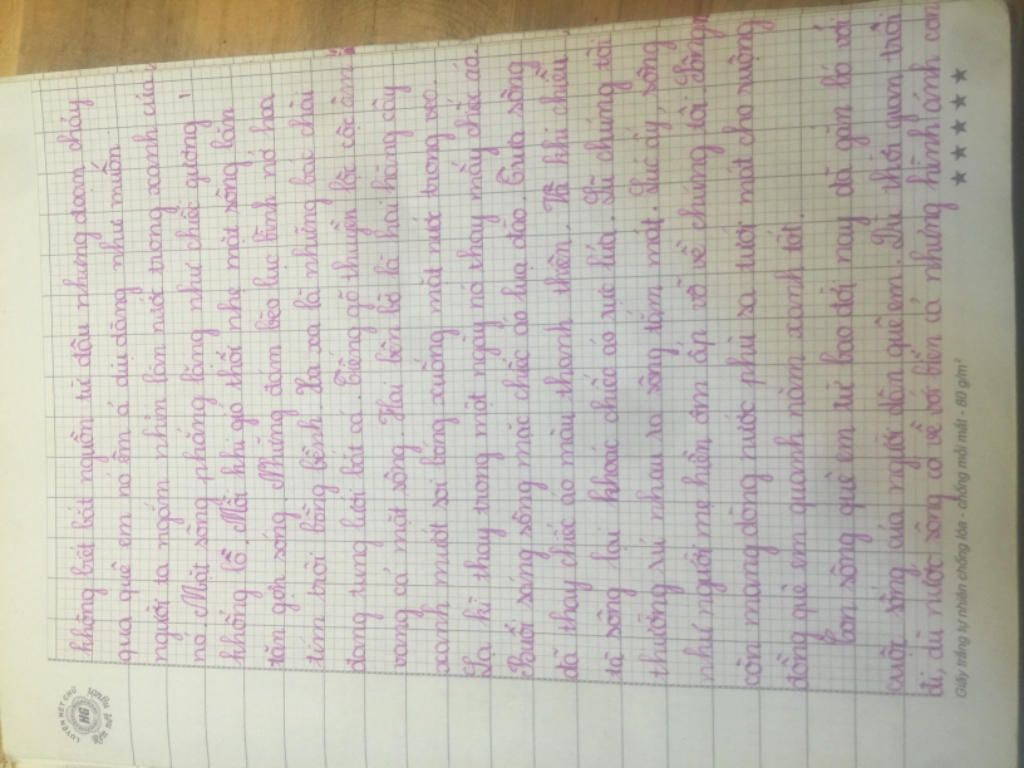 không biết bắt nguồn từ đâu nhưng đoạn chảy
qua quê em nó êm ả dịu dàng như muốn
người ta ngắm nhìn làn nước trong xanh của
nó. Mặt sông phẳng lặng như chiếc gương
khổng lồ. Mỗi khi gió thổi nhẹ mặt sông lăn
tăn gợn sóng. Những đám bèo lục bình nở hoa
tím trôi bồng bềnh. Xa xa là những bác chài
đang tung lưới bắt cá. Tiếng gõ thuyền lộc cộc làm
vang cả mặt sông. Hai bên bờ là hai hàng cây
xanh mướt soi bóng xuống mặt nước trong veo.
Lạ kì thay trong một ngày nó thay mấy chiếc áo.
Buổi sáng sông mặc chiếc áo lụa đào. Trưa sông
đã thay chiếc áo màu thanh thiên. Và khi chiều
tà sông lại khoác chiếc áo rực lửa. Lũ chúng tôi
thường rủ nhau ra sông tắm mát. Lúc ấy, sông
như người mẹ hiền ôm ấp vỗ về chúng tôi. Sông
còn mang dòng nước phù sa tưới mát cho ruộng
đồng quê em quanh năm xanh tốt.
Con sông quê em từ bao đời nay đã gắn bó với
cuộc sống của người dân quê em. Dù thời gian trôi
đi, dù nước sông có về với biển cả nhưng hình ảnh con
Giấy trắng tự nhiên chống lóa - chống mỏi mắt - 80 g/m²
LUYỆN NÉT CHỮ
HG